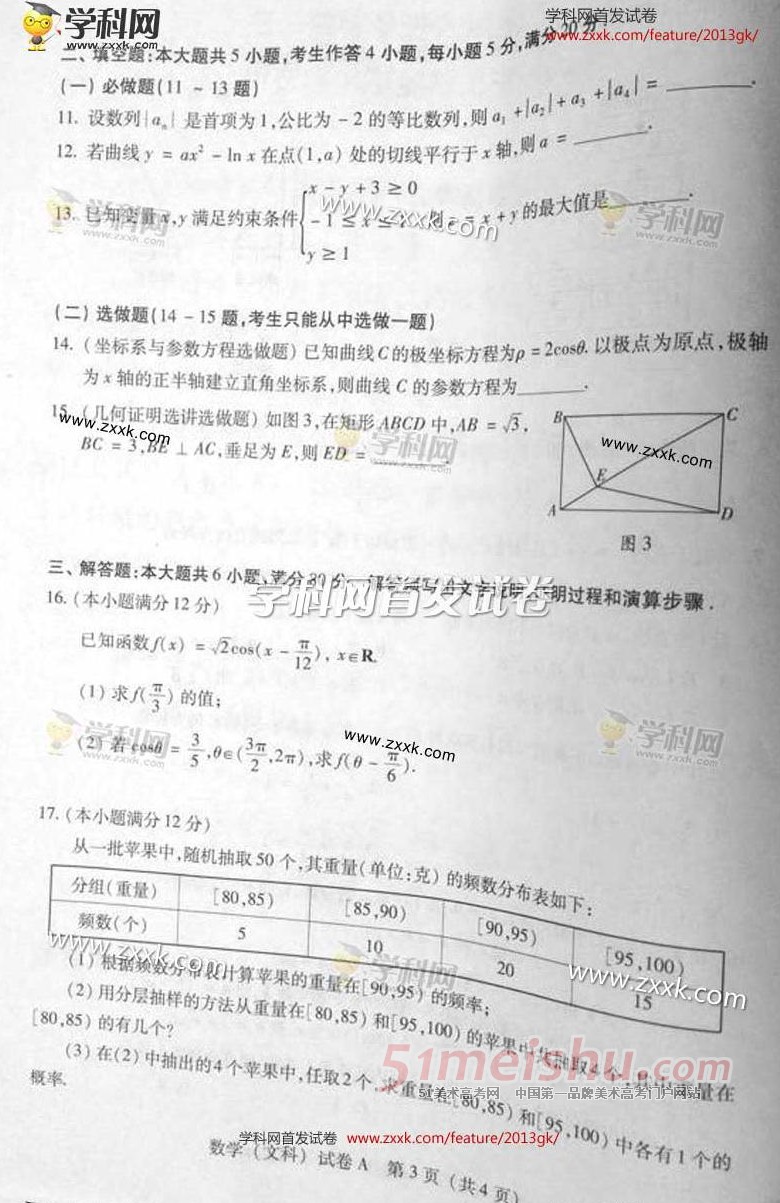 学科网
www.zxxk.com
学科网首发试卷
www.zxxk.com/feature/2013gk/
二、填空题:本大题共5小题,考生作答4小题,每小题5分,满分20分.
(一) 必做题(11 ~ 13题)
11. 设数列|aₙ| 是首项为1,公比为 -2 的等比数列,则 a₁ +|a₂|+ a₃ +|a₄| = ______.
12. 若曲线 y = ax² - ln x 在点(1,a) 处的切线平行于 x 轴,则 a = ______.
13. 已知变量 x,y 满足约束条件{x - y + 3 ≥ 0
-1 ≤ x ≤
y ≥ 1
= x + y 的最大值是______.
(二) 选做题(14 - 15题,考生只能从中选做一题)
14. (坐标系与参数方程选做题) 已知曲线C的极坐标方程为ρ = 2cosθ. 以极点为原点,极轴
为 x 轴的正半轴建立直角坐标系,则曲线 C 的参数方程为______.
15. (几何证明选讲选做题) 如图3,在矩形 ABCD 中,AB = √3,
BC = 3,BE ⊥ AC,垂足为 E,则 ED = ______.
B
C
E
A
D
图 3
三、解答题:本大题共6小题,满分80分.
明过程和演算步骤.
学科网首发试卷
16. (本小题满分12分)
已知函数 f(x) = √2cos(x - π/12), x∈R.
(1) 求 f(π/3) 的值;
(2) 若 cosθ = 3/5, θ∈(3π/2, 2π), 求 f(θ - π/6).
17. (本小题满分12分)
从一批苹果中,随机抽取50个,其重量(单位:克) 的频数分布表如下:
分组(重量) [80,85) [85,90) [90,95) [95,100)
频数(个) 5 10 20 15
(1) 根据频数分布表计算苹果的重量在[90,95) 的频率;
(2) 用分层抽样的方法从重量在[80,85) 和[95,100) 的苹果中共抽取4个,其中重量在
[80,85) 的有几个?
(3) 在(2) 中抽出的4个苹果中,任取2个,求重量在[80,85) 和[95,100) 中各有1个的
概率.
51meishu.com
51美术高考网 中国第一品牌美术高考门户网站
学科网首发试卷 www.zxxk.com/feature/2013gk/
数学(文科) 试卷A 第3页(共4页)